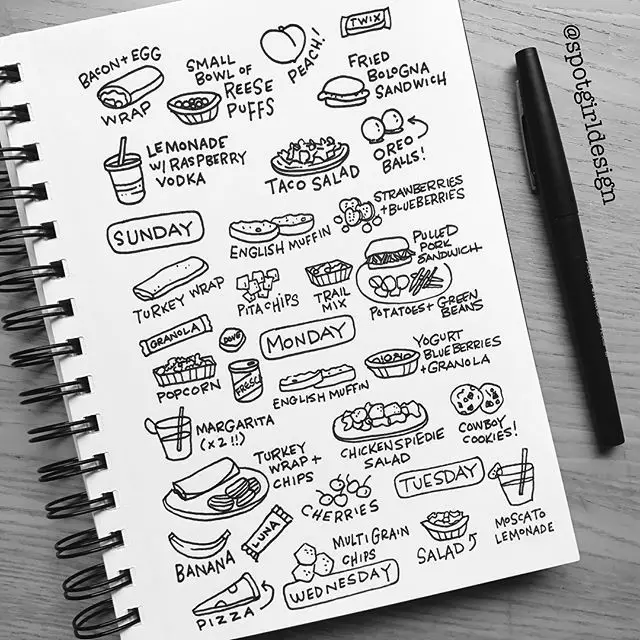 TWIX
PEACH!
BACON + EGG
WRAP
SMALL
BOWL OF
REESE
PUFFS
FRIED
BOLOGNA
SANDWICH
LEMONADE
W/ RASPBERRY
VODKA
TACO SALAD
OREO
BALLS!
SUNDAY
ENGLISH MUFFIN
STRAWBERRIES
+ BLUEBERRIES
TURKEY WRAP
PITA CHIPS
TRAIL
MIX
PULLED
PORK
SANDWICH
POTATOES + GREEN
BEANS
GRANOLA
DOVE
MONDAY
POPCORN
FRESCA
ENGLISH MUFFIN
YOGURT
BLUEBERRIES
+ GRANOLA
MARGARITA
(X2!!)
CHICKEN SPIEDIE
SALAD
COWBOY
COOKIES!
TURKEY
WRAP +
CHIPS
CHERRIES
TUESDAY
MOSCATO
LEMONADE
BANANA
LUNA
MULTIGRAIN
CHIPS
SALAD
PIZZA
WEDNESDAY
@spotgirldesign